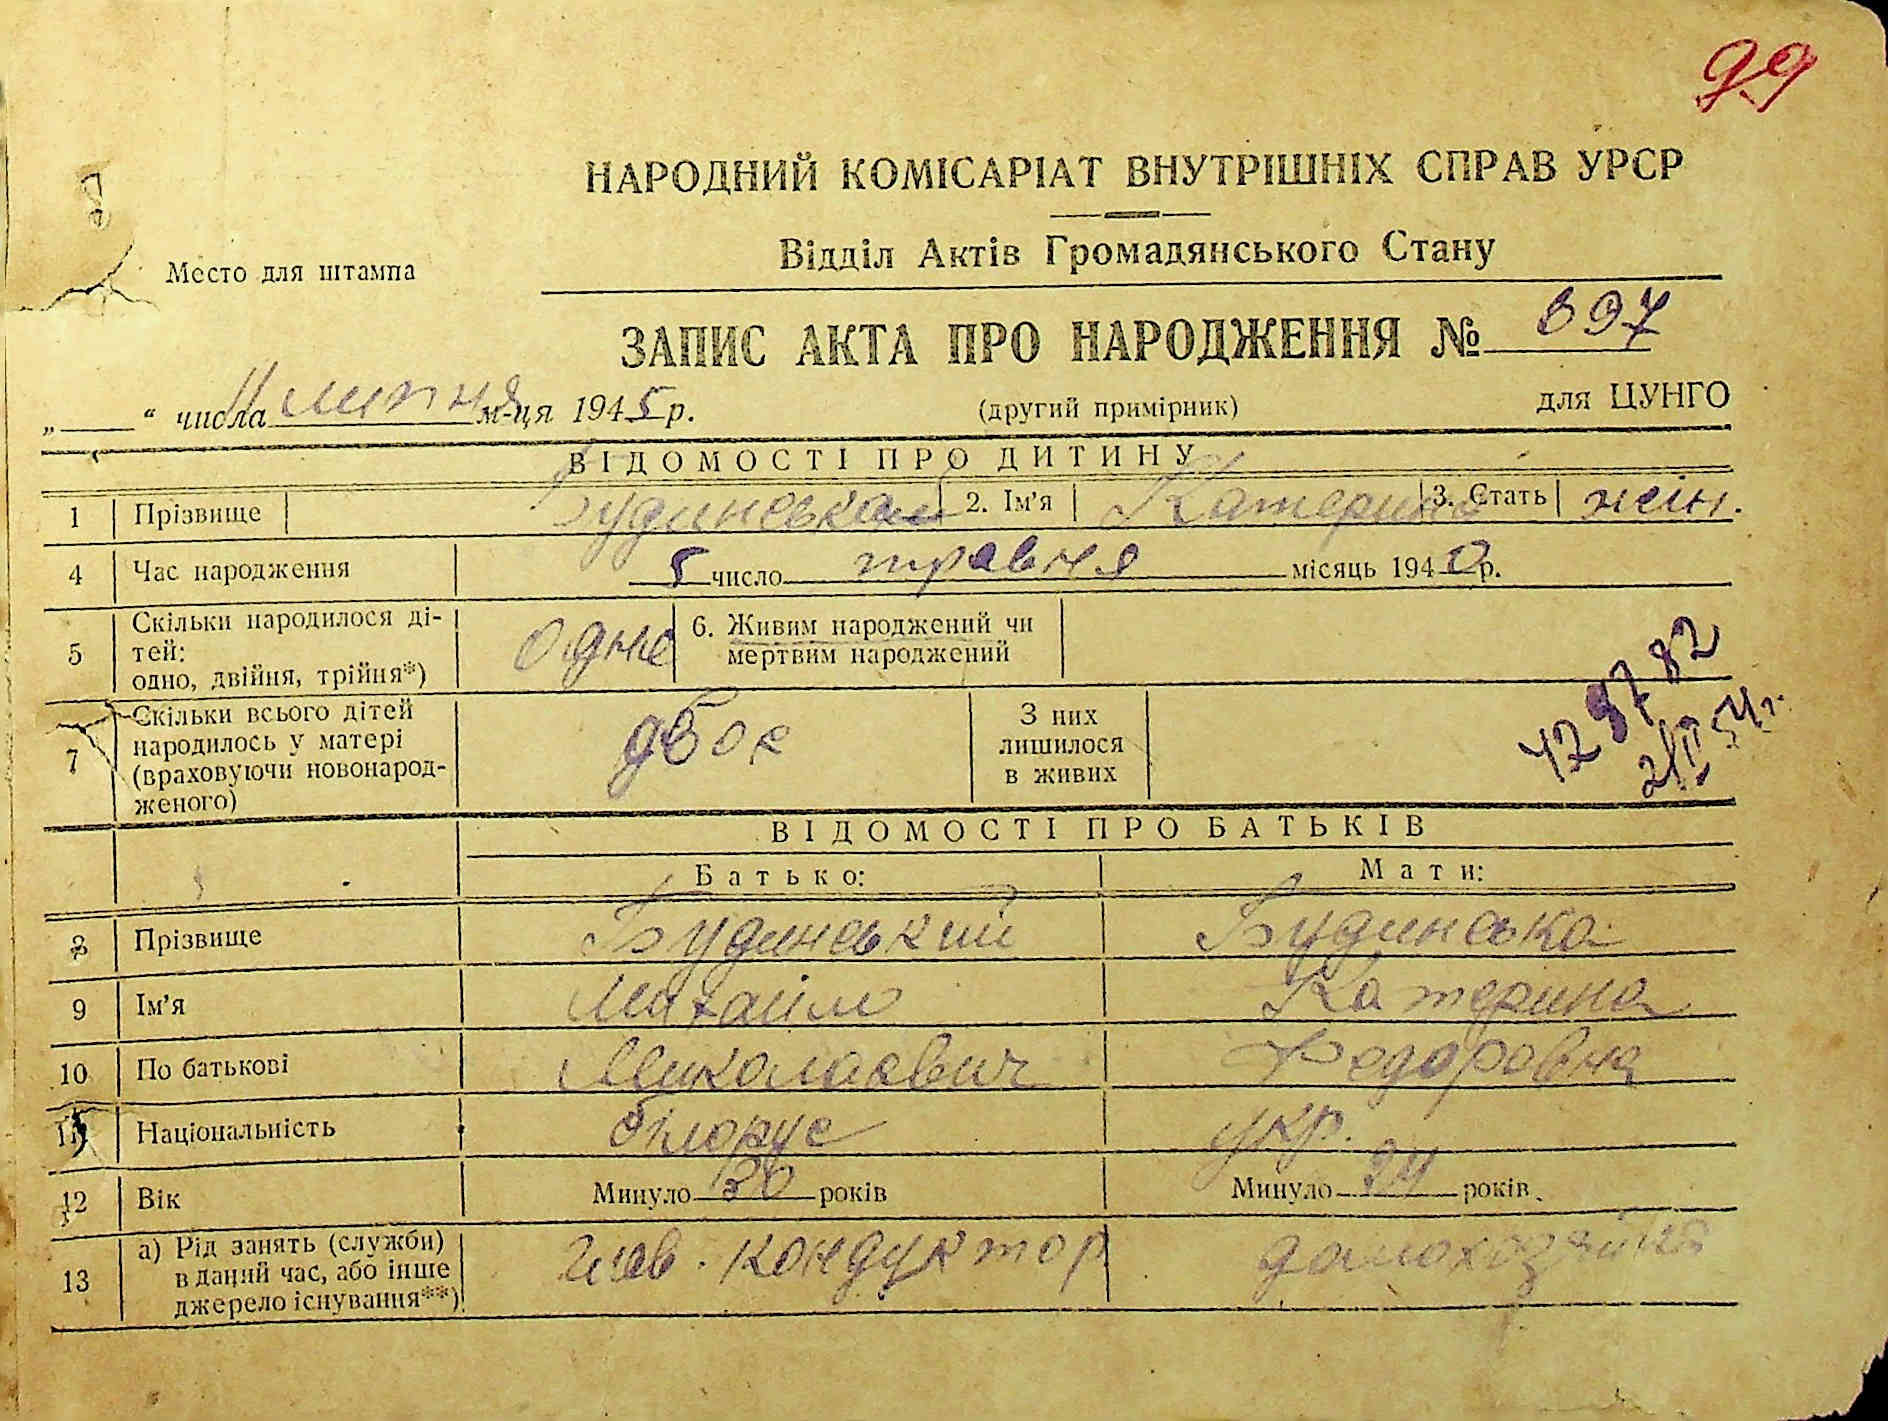 99
НАРОДНИЙ КОМІСАРІАТ ВНУТРІШНІХ СПРАВ УРСР
Відділ Актів Громадянського Стану
Место для штампа
ЗАПИС АКТА ПРО НАРОДЖЕННЯ № 697
„ “ числа 11 липня м-ця 1945 р. (другий примірник) для ЦУНГО
ВІДОМОСТІ ПРО ДИТИНУ
1 Прізвище Будинська 2. Ім’я Катерина 3. Стать жін.
4 Час народження 5 число травня місяць 1940 р.
5 Скільки народилося дітей: одно, двійня, трійня*) одне 6. Живим народжений чи мертвим народжений
7 Скільки всього дітей народилось у матері (враховуючи новонародженого) двоє З них лишилося в живих
2/II 54 г.
ВІДОМОСТІ ПРО БАТЬКІВ
Батько: Мати:
8 Прізвище Будинський Будинська
9 Ім’я Михайло Катерина
10 По батькові Миколаєвич Федоровна
11 Національність білорус укр.
12 Вік Минуло 30 років Минуло 24 років.
13 а) Рід занять (служби) в даний час, або інше джерело існування**) глав. кондуктор домохозяйка